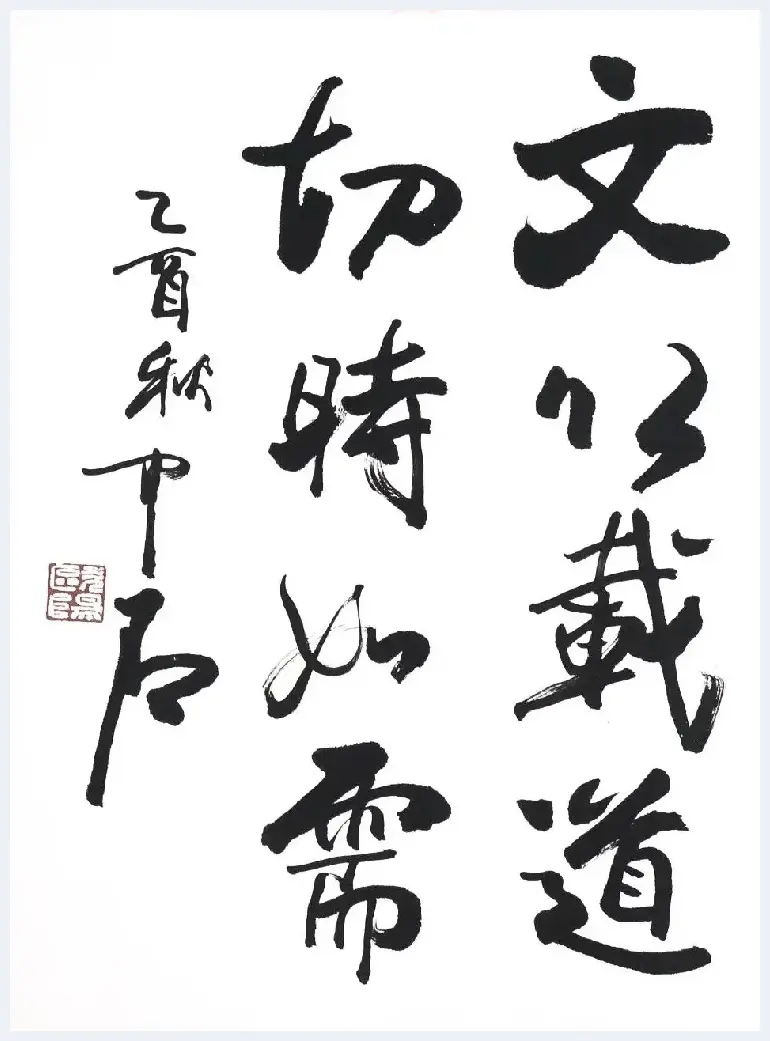 文以載道
切時如需
乙酉秋中石